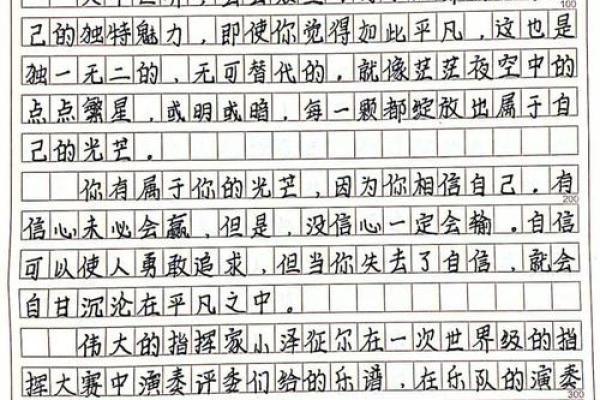 100
己的独特魅力，即使你觉得如此平凡，这也是
独一无二的，无可替代的。就像茫茫夜空中的
点点繁星，或明或暗，每一颗都绽放出属于自
己的光芒。
你有属于你的光芒，因为你相信自己。有
200
信心未必会赢，但是，没信心一定会输。自信
可以使人勇敢追求，但当你失去了自信，就会
自甘沉沦在平凡之中。
伟大的指挥家小泽征尔在一次世界级的指
挥大赛中演奏评委们给的乐谱，在乐队的演奏
300